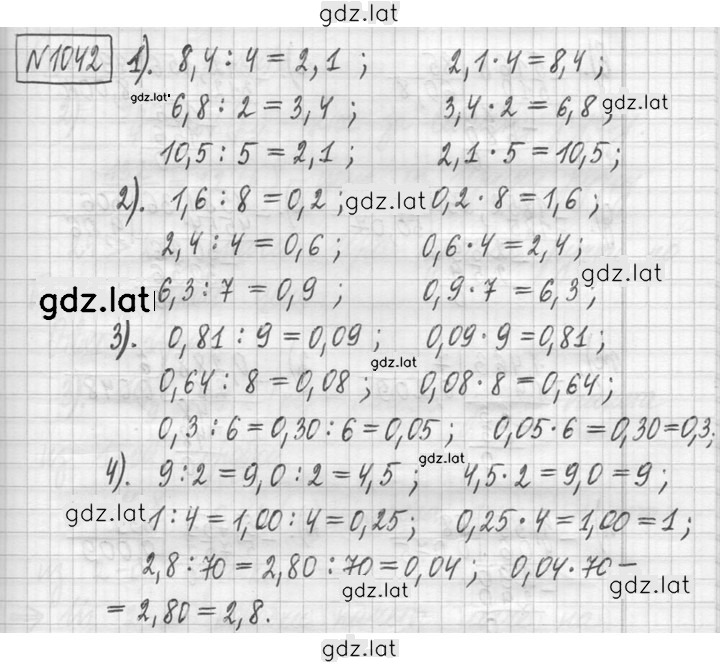 gdz.lat
№1042 1). 8,4 : 4 = 2,1 ; 2,1 · 4 = 8,4 ;
gdz.lat 6,8 : 2 = 3,4 ; 3,4 · 2 = 6,8 ; gdz.lat
10,5 : 5 = 2,1 ; 2,1 · 5 = 10,5 ;
2). 1,6 : 8 = 0,2 ; gdz.lat 0,2 · 8 = 1,6 ;
2,4 : 4 = 0,6 ; 0,6 · 4 = 2,4 ;
gdz.lat
gdz.lat 6,3 : 7 = 0,9 ; 0,9 · 7 = 6,3 ;
3). 0,81 : 9 = 0,09 ; 0,09 · 9 = 0,81 ;
gdz.lat
0,64 : 8 = 0,08 ; 0,08 · 8 = 0,64 ;
0,3 : 6 = 0,30 : 6 = 0,05 ; 0,05 · 6 = 0,30 = 0,3 ;
4). 9 : 2 = 9,0 : 2 = 4,5 ; gdz.lat 4,5 · 2 = 9,0 = 9 ;
gdz.lat 1 : 4 = 1,00 : 4 = 0,25 ; 0,25 · 4 = 1,00 = 1 ;
2,8 : 70 = 2,80 : 70 = 0,04 ; 0,04 · 70 =
gdz.lat gdz.lat
= 2,80 = 2,8.
gdz.lat